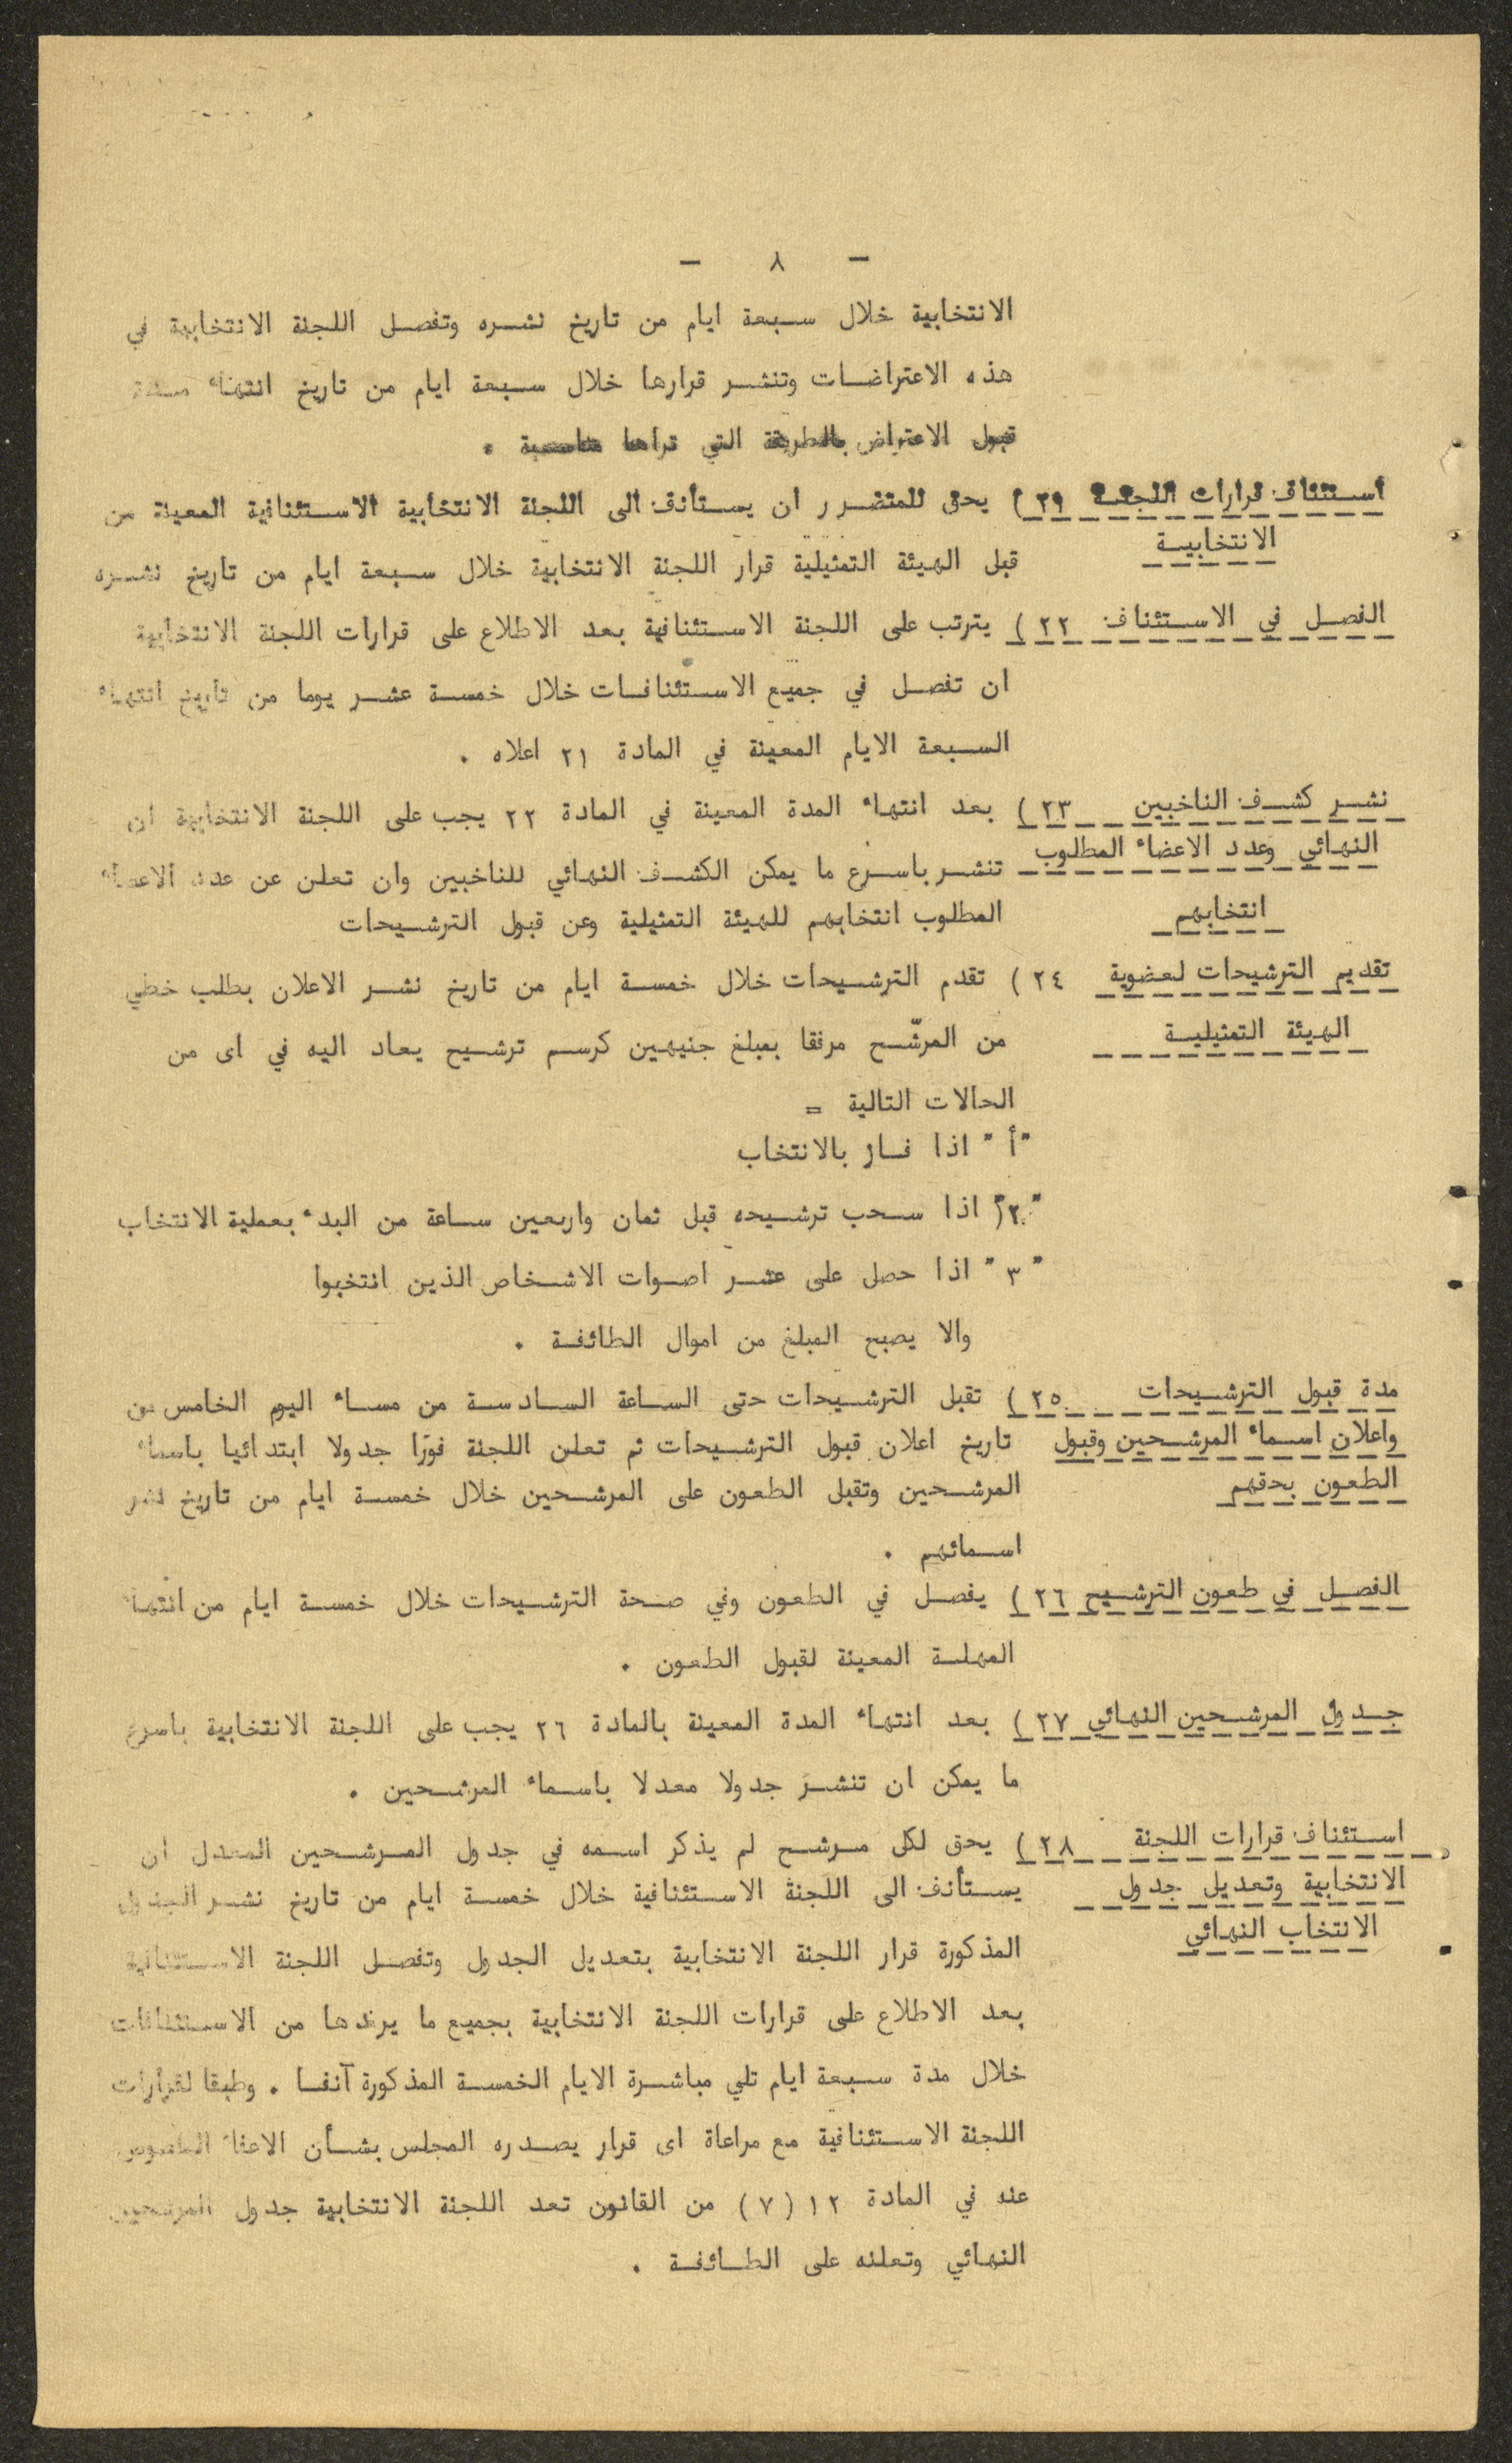 - ٨ -
الانتخابية خلال سبعة ايام من تاريخ نشره وتفصل اللجنة الانتخابية في
هذه الاعتراضات وتنشر قرارها خلال سبعة ايام من تاريخ انتهاء مدة
قبول الاعتراض بالطريقة التي تراها مناسبة .
استئناف قرارات اللجنة ٢٩ ) يحق للمتضرر ان يستأنف الى اللجنة الانتخابية الاستئنافية المعينة من
الانتخابية
قبل الهيئة التمثيلية قرار اللجنة الانتخابية خلال سبعة ايام من تاريخ نشره
الفصل في الاستئناف ٢٢ ) يترتب على اللجنة الاستئنافية بعد الاطلاع على قرارات اللجنة الانتخابية
ان تفصل في جميع الاستئنافات خلال خمسة عشر يوما من تاريخ انتهاء
السبعة الايام المعينة في المادة ٢١ اعلاه .
نشر كشف الناخبين ٢٣ ) بعد انتهاء المدة المعينة في المادة ٢٢ يجب على اللجنة الانتخابية ان
النهائي وعدد الاعضاء المطلوب تنشر باسرع ما يمكن الكشف النهائي للناخبين وان تعلن عن عدد الاعضاء
انتخابهم المطلوب انتخابهم للهيئة التمثيلية وعن قبول الترشيحات
تقديم الترشيحات لعضوية ٢٤ ) تقدم الترشيحات خلال خمسة ايام من تاريخ نشر الاعلان بطلب خطي
الهيئة التمثيلية من المرشّح مرفقا بمبلغ جنيهين كرسم ترشيح يعاد اليه في اى من
الحالات التالية =
"أ" اذا فاز بالانتخاب
"٢" اذا سحب ترشيحه قبل ثمان واربعين ساعة من البدء بعملية الانتخاب
"٣" اذا حصل على عشر اصوات الاشخاص الذين انتخبوا
والا يصبح المبلغ من اموال الطائفة .
مدة قبول الترشيحات ٢٥ ) تقبل الترشيحات حتى الساعة السادسة من مساء اليوم الخامس من
واعلان اسماء المرشحين وقبول تاريخ اعلان قبول الترشيحات ثم تعلن اللجنة فورا جدولا ابتدائيا باسماء
الطعون بحقهم المرشحين وتقبل الطعون على المرشحين خلال خمسة ايام من تاريخ نشر
اسمائهم .
الفصل في طعون الترشيح ٢٦ ) يفصل في الطعون وفي صحة الترشيحات خلال خمسة ايام من انتهاء
المهلة المعينة لقبول الطعون .
جدول المرشحين النهائي ٢٧ ) بعد انتهاء المدة المعينة بالمادة ٢٦ يجب على اللجنة الانتخابية باسرع
ما يمكن ان تنشر جدولا معدلا باسماء المرشحين .
استئناف قرارات اللجنة ٢٨ ) يحق لكل مرشح لم يذكر اسمه في جدول المرشحين المعدل ان
الانتخابية وتعديل جدول يستأنف الى اللجنة الاستئنافية خلال خمسة ايام من تاريخ نشر الجدول
الانتخاب النهائي
المذكورة قرار اللجنة الانتخابية بتعديل الجدول وتفصل اللجنة الاستئنافية
بعد الاطلاع على قرارات اللجنة الانتخابية بجميع ما يردها من الاستئنافات
خلال مدة سبعة ايام تلي مباشرة الايام الخمسة المذكورة آنفا . وطبقا لقرارات
اللجنة الاستئنافية مع مراعاة اى قرار يصدره المجلس بشأن الاعفاء
عنه في المادة ١٢ (٧) من القانون تعد اللجنة الانتخابية جدول المرشحين
النهائي وتعلنه على الطائفة .